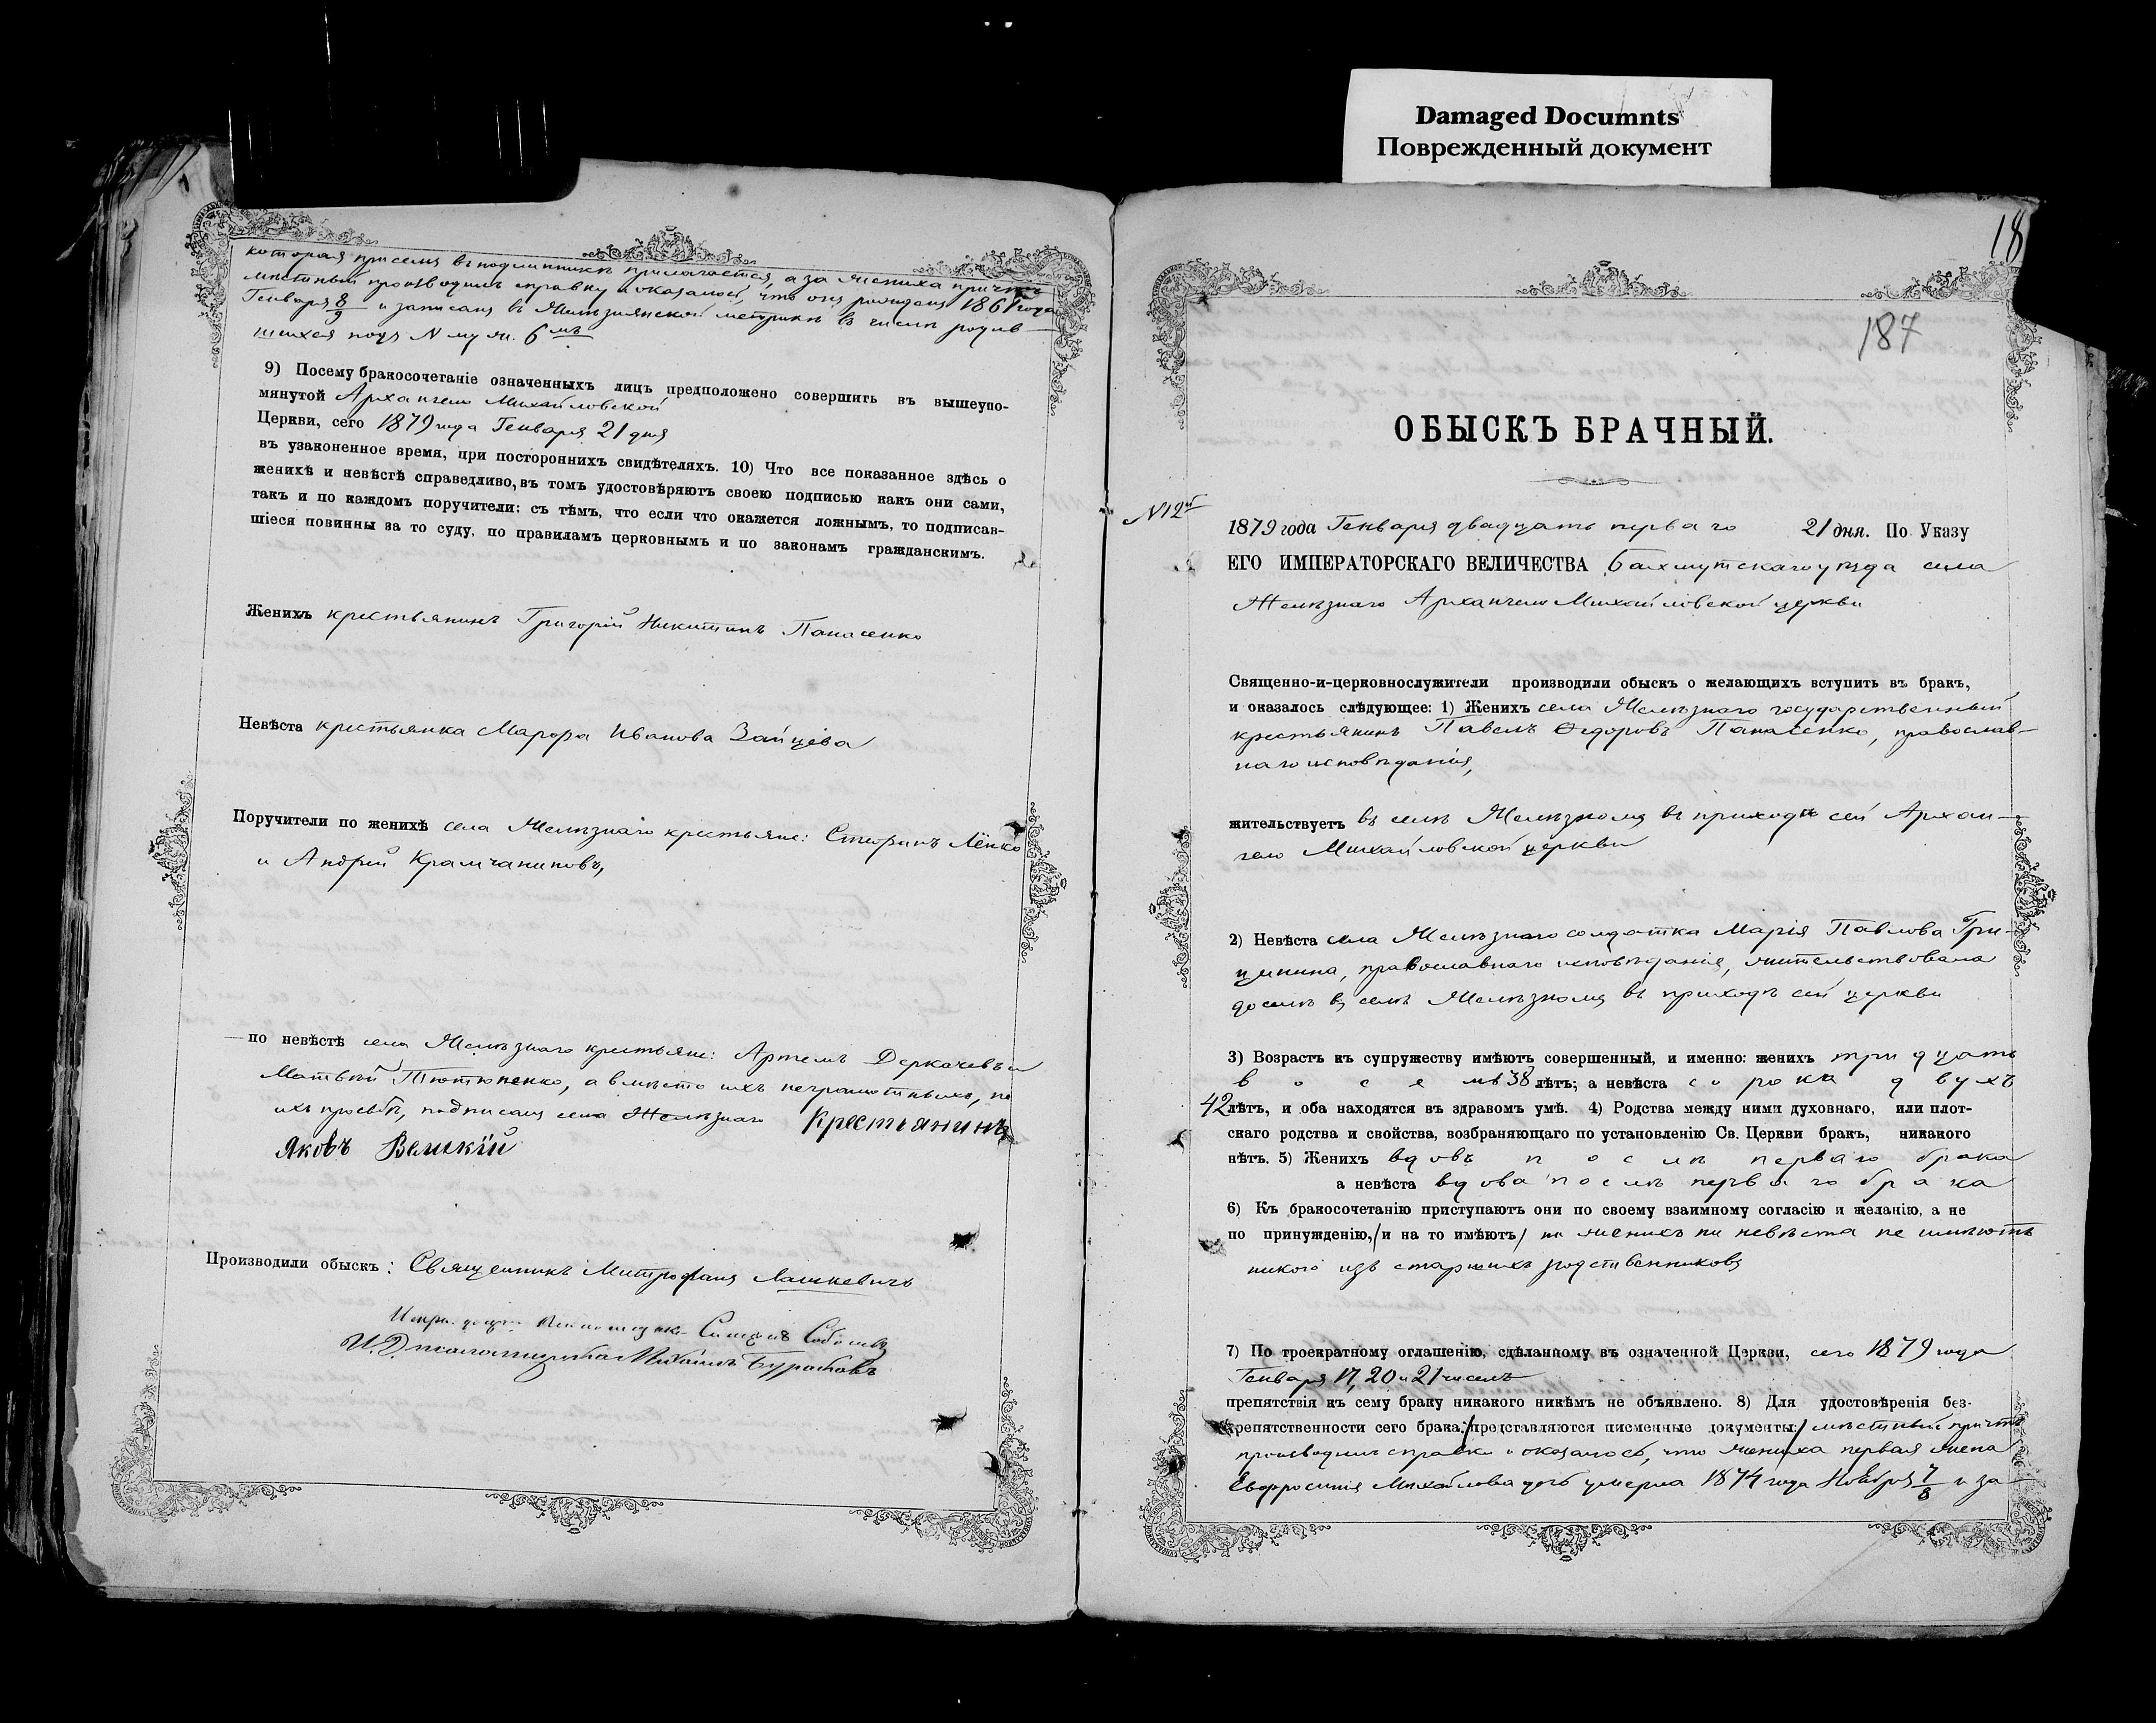 Damaged Documnts
Поврежденный документ
которая при семъ въ подлинникѣ прилагается, а за жениха причтъ
мѣстный производилъ справку и оказалось, что онъ рожденъ 1861 года
Генваря 8/9 и записанъ въ Желѣзнянской метрикѣ въ числѣ родив-
шихся подъ N муж. 6мъ
9) Посему бракосочетаніе означенныхъ лицъ предположено совершить въ вышеупо-
мянутой Архангело Михайловской
Церкви, сего 1879 года Генваря 21 дня
въ узаконенное время, при постороннихъ свидѣтеляхъ. 10) Что все показанное здѣсь о
женихѣ и невѣстѣ справедливо, въ томъ удостовѣряютъ своею подписью какъ они сами,
такъ и по каждомъ поручители; съ тѣмъ, что если что окажется ложнымъ, то подписав-
шіеся повинны за то суду, по правиламъ церковнымъ и по законамъ гражданскимъ.
Женихъ крестьянинъ Григорій Никитинъ Панасенко
Невѣста крестьянка Марфа Иванова Зайцева
Поручители по женихѣ села Желѣзнаго крестьяне: Стефанъ Лёнко
и Андрій Крамчаниновъ,
по невѣстѣ села Желѣзнаго крестьяне: Артемъ Деркачевъ и
Матвѣй Тютюненко, а вмѣсто ихъ неграмотныхъ, по
ихъ просьбѣ, подписалъ села Желѣзнаго Крестьянинъ
Яковъ Великій
Производили обыскъ: Священникъ Митрофанъ Лашкевичъ
И. Д. псаломщика Михаилъ Бурабовъ
18
187
ОБЫСКЪ БРАЧНЫЙ.
N 12й
1879 года Генваря двадцать перваго 21 дня. По Указу
ЕГО ИМПЕРАТОРСКАГО ВЕЛИЧЕСТВА Бахмутскаго уѣзда села
Желѣзнаго Архангело Михайловской церкви
Священно-и-церковнослужители производили обыскъ о желающихъ вступить въ бракъ,
и оказалось слѣдующее: 1) Женихъ села Желѣзнаго государственный
крестьянинъ Павелъ Ѳедоровъ Панасенко, православ-
наго исповѣданія,
жительствуетъ въ селѣ Желѣзномъ въ приходѣ сей Архан-
гело Михайловской церкви
2) Невѣста села Желѣзнаго солдатка Марія Павлова Гри-
цинина, православнаго исповѣданія, жительствовала
доселѣ въ селѣ Желѣзномъ въ приходѣ сей церкви
3) Возрастъ къ супружеству имѣютъ совершенный, и именно: женихъ тридцать
восемь 38 лѣтъ; а невѣста сорока двухъ
42 лѣтъ, и оба находятся въ здравомъ умѣ. 4) Родства между ними духовнаго, или плот-
скаго родства и свойства, возбраняющаго по установленію Св. Церкви бракъ, никакого
нѣтъ. 5) Женихъ вдовъ послѣ перваго брака
а невѣста вдова послѣ перваго брака
6) Къ бракосочетанію приступаютъ они по своему взаимному согласію и желанію, а не
по принужденію, /и на то имѣютъ/ ни женихъ ни невѣста не имѣютъ
никого изъ старшихъ родственниковъ
7) По троекратному оглашенію, сдѣланному въ означенной Церкви, сего 1879 года
Генваря 17, 20 и 21 числъ
препятствія къ сему браку никакого никѣмъ не объявлено. 8) Для удостовѣренія без-
препятственности сего брака /представляются писменные документы:/ мѣстный причтъ
производилъ справки и оказалось, что жениха первая жена
Евфросинія Михайлова дочь умерла 1874 года Ноября 7/8 и за-